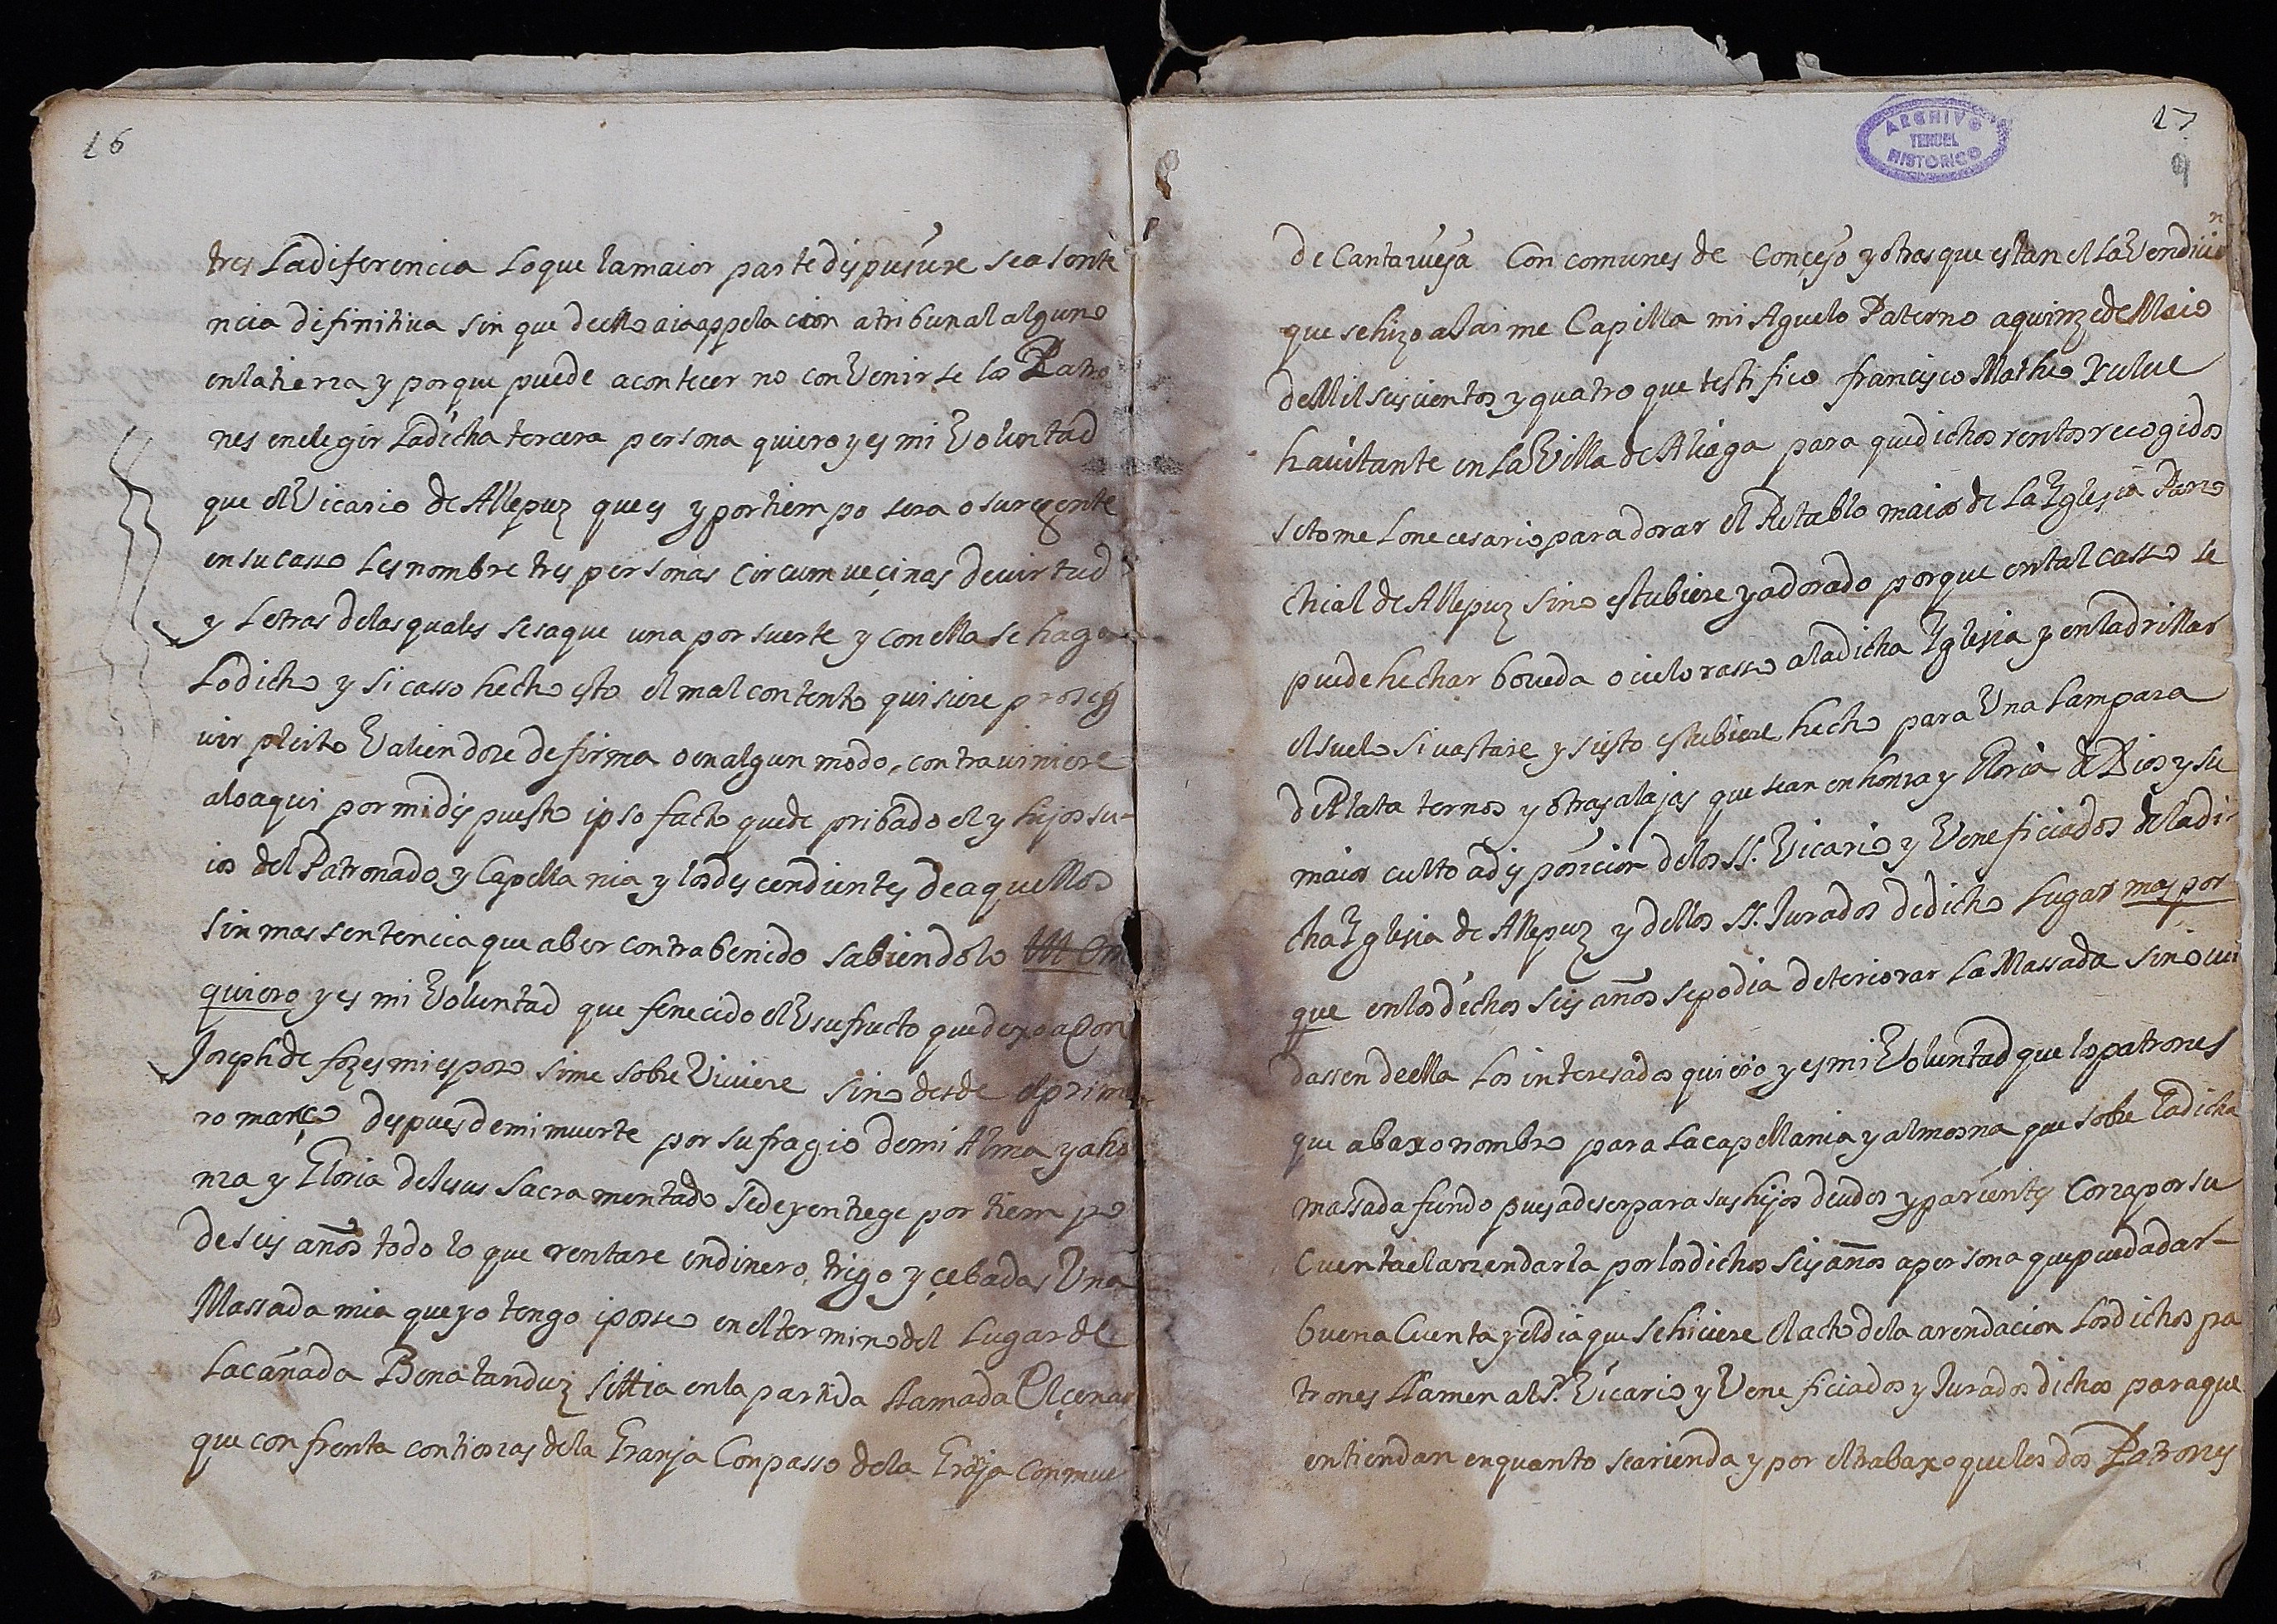 16
tres La diferencia Lo que la maior parte dispusiere sea sente
ncia difinitiva sin que de ello aia appelacion a tribunal alguno
en la tierra y porque puede acontecer no conVenirse los Patro
nes en elegir La dicha tercera persona quiero y es mi Voluntad
que el Vicario de Allepuz que es y por tiempo sera o su regente
en su casso Les nombre tres personas circumveçinas de virtud
y Letras de las quales se saque una por suerte y con ella se haga
Lo dicho y si casso hecho esto el mal contento quisiere proseg
uir pleito Valiendose de firma o en algun modo, contraviniere
a lo aqui por mi dispuesto ipso facto quede pribado el y hijos su-
ios del Patronado y Capellania y los descendientes de aquellos
sin mas sentencia que aber contrabenido sabiendolo Ittem
quiero y es mi Voluntad que fenecido el Usufructo que dexo a Don
Joseph de fozes mi esposo si me sobreViviere sino desde el prime
ro março despues de mi muerte por sufragio de mi Alma y a ho
nra y Gloria de Jesus Sacramentado se de y entrege por tiempo
de seis años todo lo que rentare en dinero, trigo y çebadas Una
Massada mia que yo tengo i posseo en el termino del Lugar de
La cañada Benatanduz sittia en la partida llamada
que confrenta con tierras de la Granja Con passo de la Graja con mue
ARCHIVO
TERUEL
HISTORICO
17
9
de Cantavieja Con comunes de Conçejo y otras que estan el la Vendicion
que se hizo a Jaime Capilla mi Aguelo Paterno a quinze de Maio
de Mil seiscientos y quatro que testifico francisco Matheo
havitante en La Villa de Aliaga para que dichos rentos recogidos
se tome Lo necesario para dorar el Retablo maior de La Yglesia Parro
chial de Allepuz sino estubiere ya dorado porque en tal casso se
puede hechar boveda o cielo rasso a la dicha Yglesia y enladrillar
el suelo si vastare y si esto estubiere hecho para Una Lampara
de Plata ternos y otras alajas que sean en honra y Gloria de Dios y su
maior culto a disposicion de los SS. Vicario y Veneficiados de la di-
cha Yglesia de Allepuz y de llos SS. Jurados de dicho Lugar mas por
que en los dichos seis años se podia deteriorar La Massada sino cui
dassen de ella Los interesados quiero y es mi Voluntad que los patrones
que abaxo nombro para La capellania y almosna que sobre La dicha
massada fundo pues a de ser para sus hijos deudos y parientes Corra por su
Cuenta el arrendarla por los dichos seis años a persona que pueda dar-
buena Cuenta y el dia que se hiciere el acto de la arendacion Los dichos pa
trones Llamen al Sr. Vicario y Veneficiados y Jurados dichos para que
entiendan en quanto se arienda y por el trabaxo que los dos Patrones